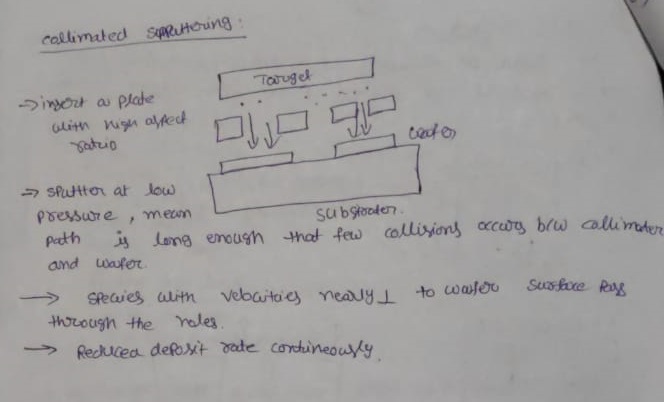 collimated sputtering :
Target
→ insert a plate
with high aspect
ratio
wafer
→ sputter at low
pressure, mean
substrater.
path is long enough that few collisions occurs b/w collimater
and wafer.
→ species with velocitaies nearly ⊥ to wafer surface pass
through the holes.
→ Reduced deposit rate contineously.